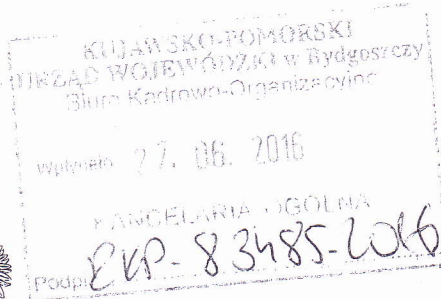 KUJAWSKO-POMORSKI
URZĄD WOJEWÓDZKI w Bydgoszczy
Biuro Kadrowo-Organizacyjne
Wpłynęło 27. 06. 2016
KANCELARIA OGÓLNA
Podpis EKP-83485-2016